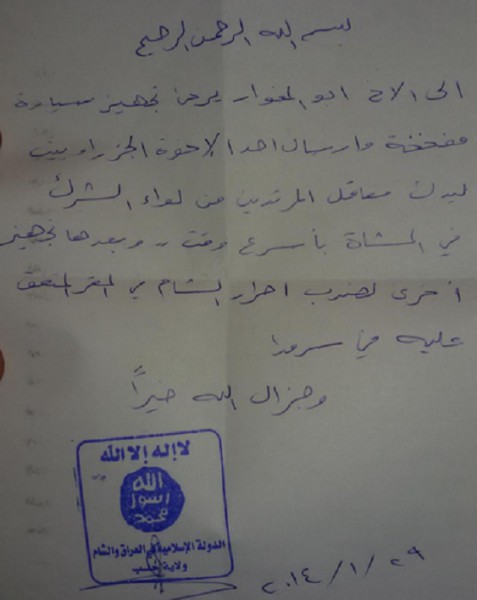 بسم الله الرحمن الرحيم
الى الاخ ابو المغوار يرجى تجهيز سيارة
مفخخة وارسال احد الإخوة الجزراويين
ليدك معاقل المرتدين من لواء الشرك
في المشاة بأسرع وقت وبعدها تجهيز
أخرى لضرب احرار الشام في المقر المتفق
عليه في سرمدا
وجزاك الله خيراً
لا إله إلا الله
الله
رسول
محمد
الدولة الإسلامية في العراق والشام
ولاية حلب
٢٠١٤/١/٢٩